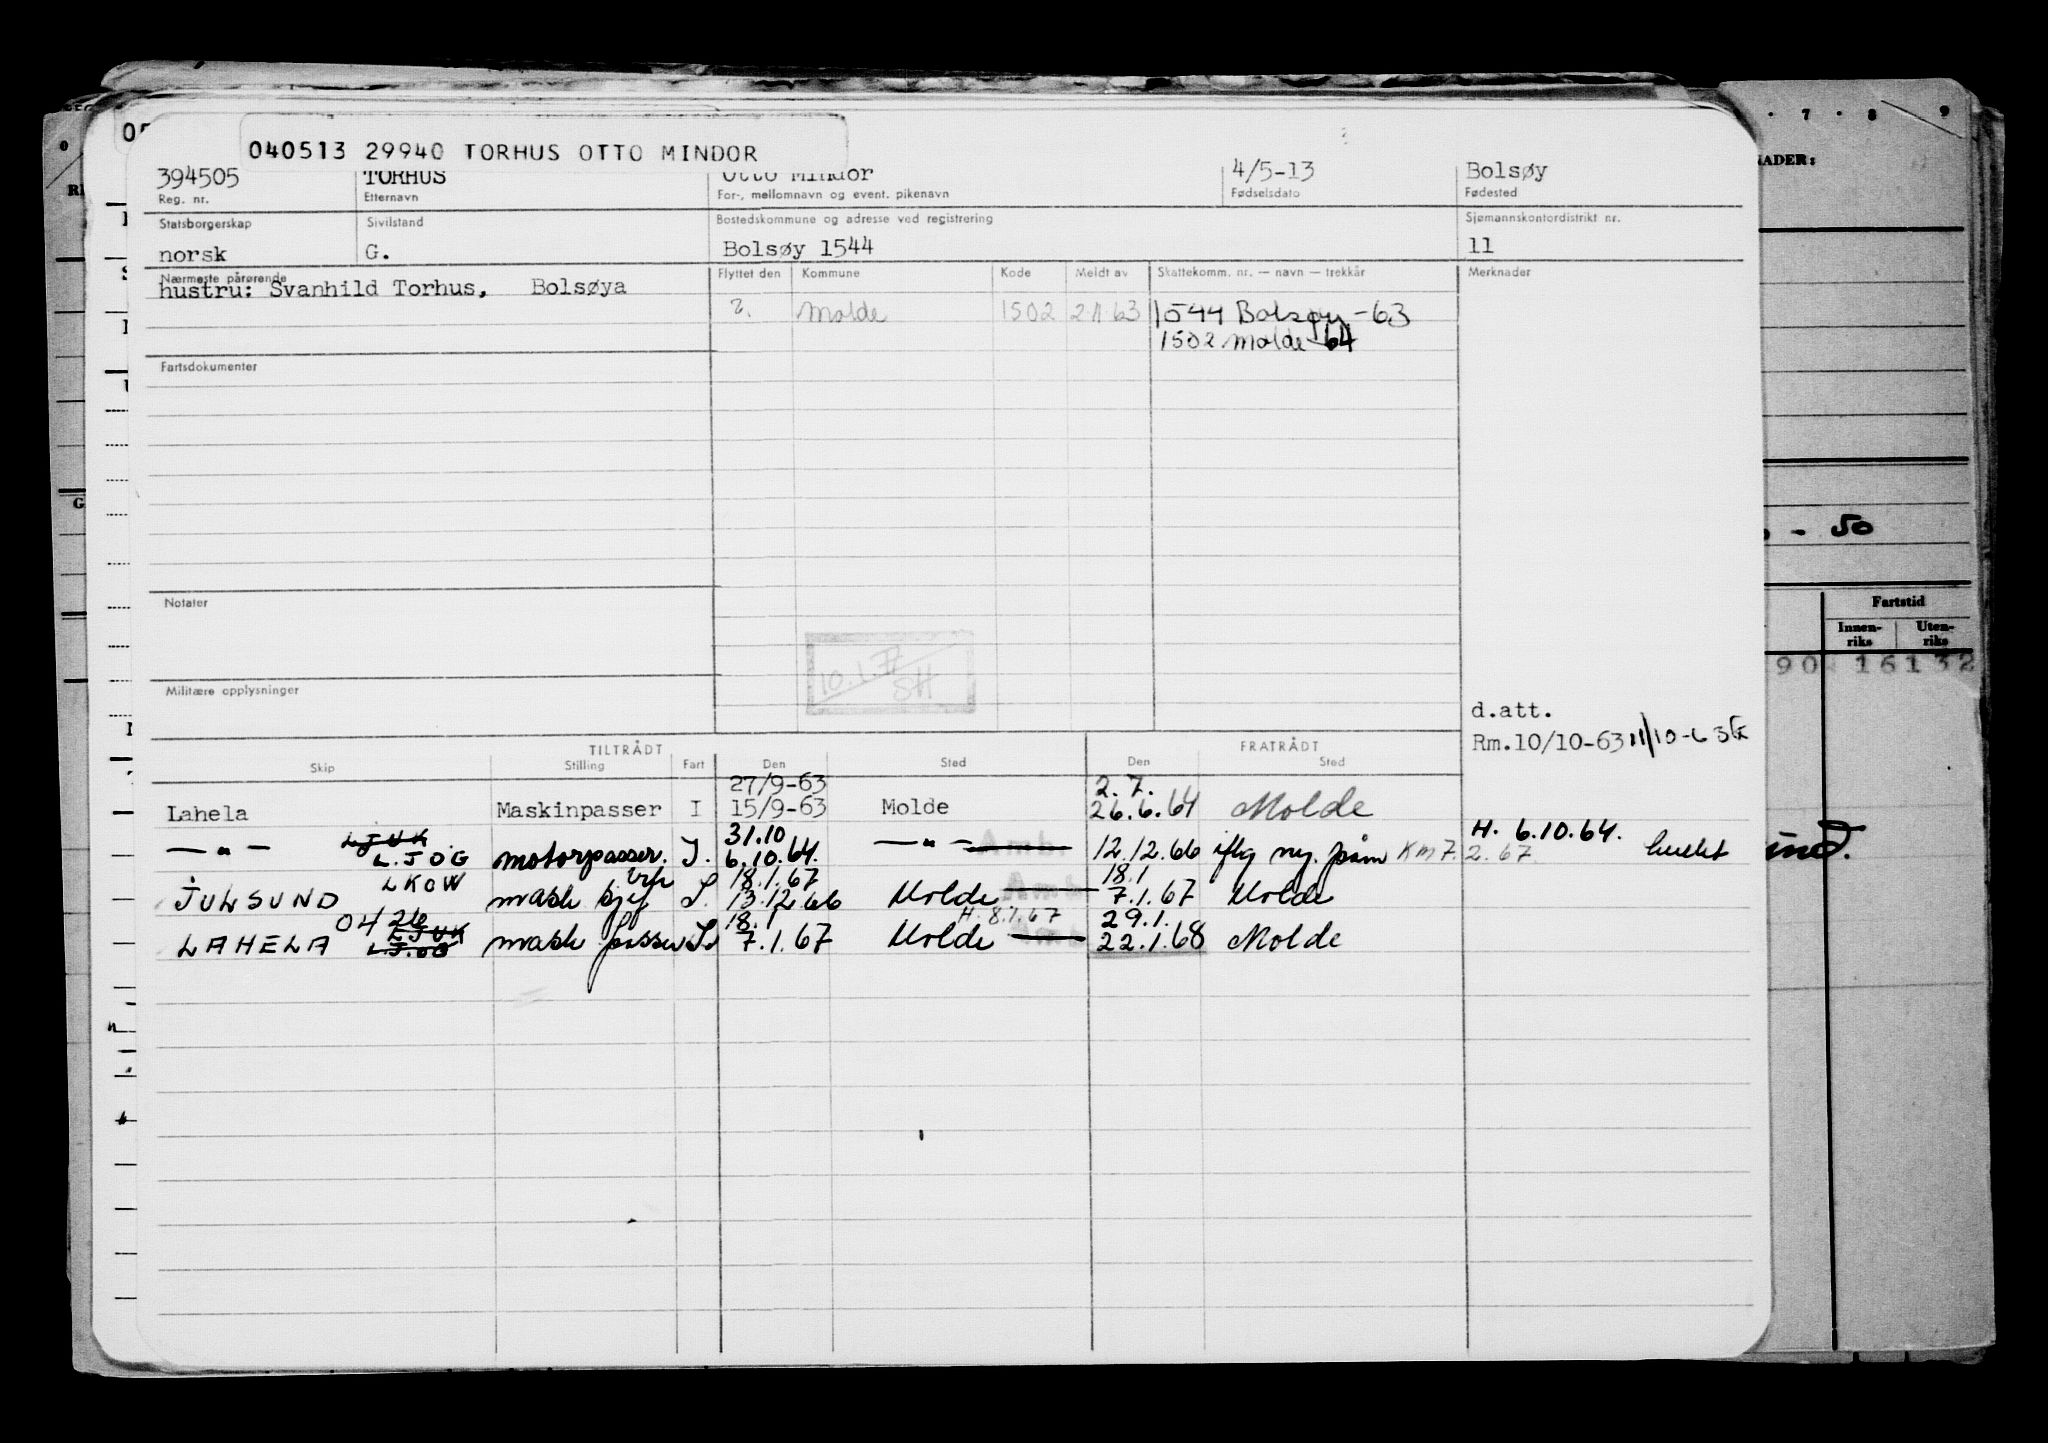 7 · 8 9
NADER:
040513 29940 TORHUS OTTO MINDOR
394505 TORHUS Otto Mindor 4/5-13 Bolsøy
Reg. nr. Etternavn For-, mellomnavn og event. pikenavn Fødselsdato Fødested
Statsborgerskap Sivilstand Bostedskommune og adresse ved registrering Sjømannskontordistrikt nr.
norsk G. Bolsøy 1544 11
Nærmeste pårørende Flyttet den Kommune Kode Meldt av Skattekomm. nr. — navn — trekkår Merknader
hustru: Svanhild Torhus, Bolsøya
Molde 1502 2.11.63 1544 Bolsøy -63
1502 Molde 64
Fartsdokumenter
- 50
Notater
Fartstid
Innen-riks Uten-riks
90 16132
10.1. SH
Militære opplysninger
d.att.
Rm.10/10-63 11/10-63
TILTRÅDT FRATRÅDT
Skip Stilling Fart Den Sted Den Sted
27/9-63 2.7.
Lahela Maskinpasser I 15/9-63 Molde 26.6.64 Molde
31.10 H. 6.10.64.
— " — LJUK L.JOG motorpasser. I. 6.10.64. — " — 12.12.66 iflg ny. påm KM 7.2.67
LKOW 18.1.67 18.1
JULSUND mask sjef 13.12.66 Molde 7.1.67 Molde
04 26 18.1 H. 8.1.67 29.1.
LAHELA LJUK L.J.OG mask passer 7.1.67 Molde 22.1.68 Molde